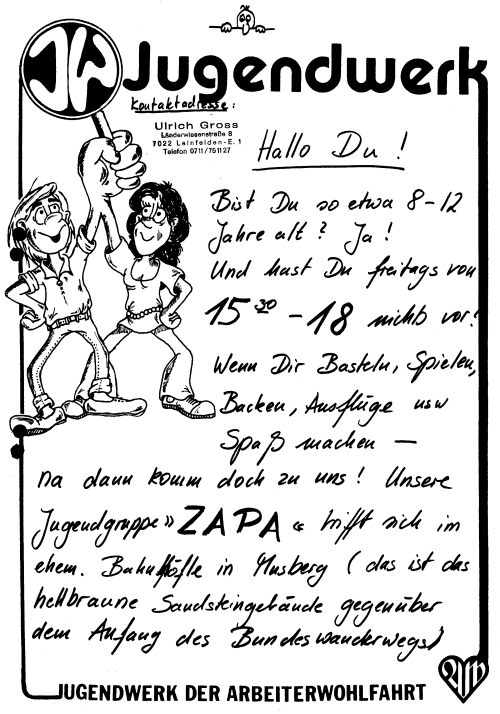 JW Jugendwerk
Kontaktadresse:
Ulrich Gross
Länderwiesenstraße 8
7022 Leinfelden-E. 1
Telefon 0711/751127
Hallo Du!
Bist Du so etwa 8-12
Jahre alt? Ja!
Und hast Du freitags von
15 30 - 18 nichts vor?
Wenn Dir Basteln, Spielen,
Backen, Ausflüge usw
Spaß machen —
na dann komm doch zu uns! Unsere
Jugendgruppe »ZAPA« trifft sich im
ehem. Bahnhöfle in Musberg (das ist das
hellbraune Sandsteingebäude gegenüber
dem Anfang des Bundeswanderwegs)
JUGENDWERK DER ARBEITERWOHLFAHRT
AW